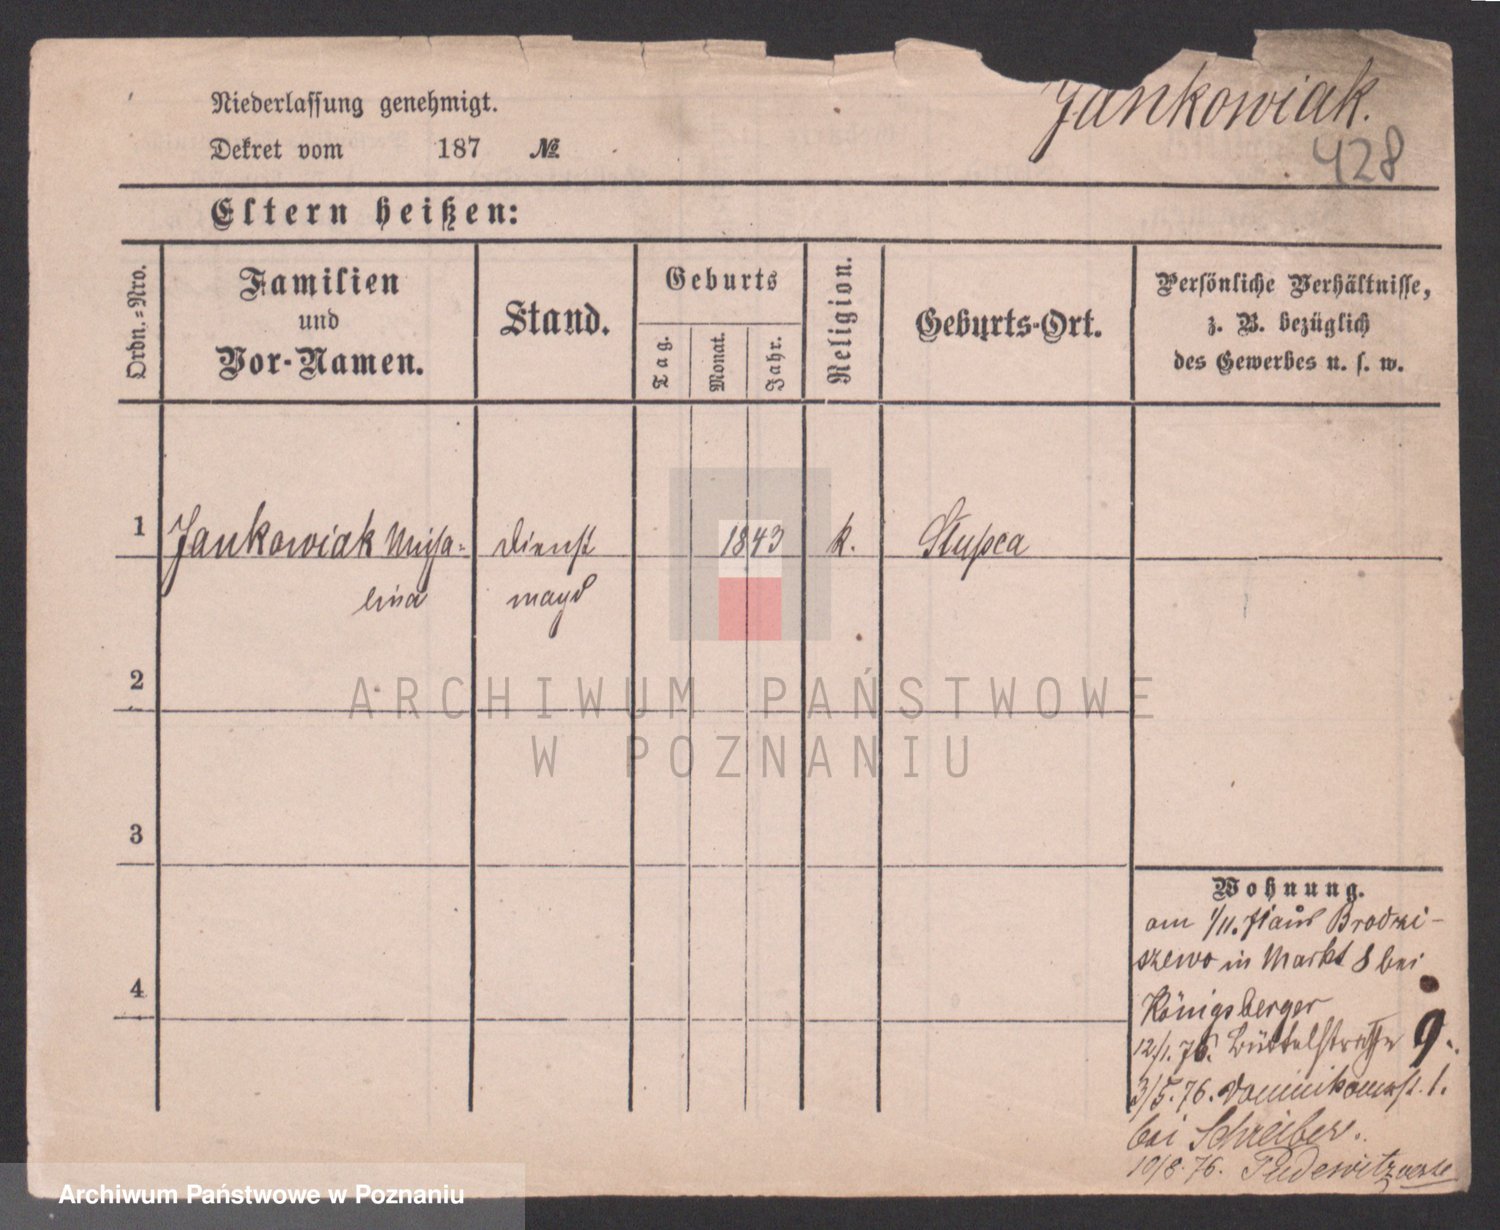 Jankowiak.
428
Niederlassung genehmigt.
Dekret vom 187 №
Eltern heißen:
Ordn.-Nro.
Familien
und
Vor-Namen.
Stand.
Geburts
Tag.
Monat.
Jahr.
Religion.
Geburts-Ort.
Persönliche Verhältnisse,
z. B. bezüglich
des Gewerbes u. s. w.
1 Jankowiak Micha- Dienst 1843 k. Slupca
lina magd
2
ARCHIWUM PAŃSTWOWE
W POZNANIU
3
4
Wohnung.
am 1/11. 71 aus Brodzi-
szewo in Markt 8 bei
Königsberger
12/1. 76. Büttelstraße 9.
3/5. 76. Dominikanerst. 1.
bei Schreiber.
10/8. 76. Pudewitz
Archiwum Państwowe w Poznaniu